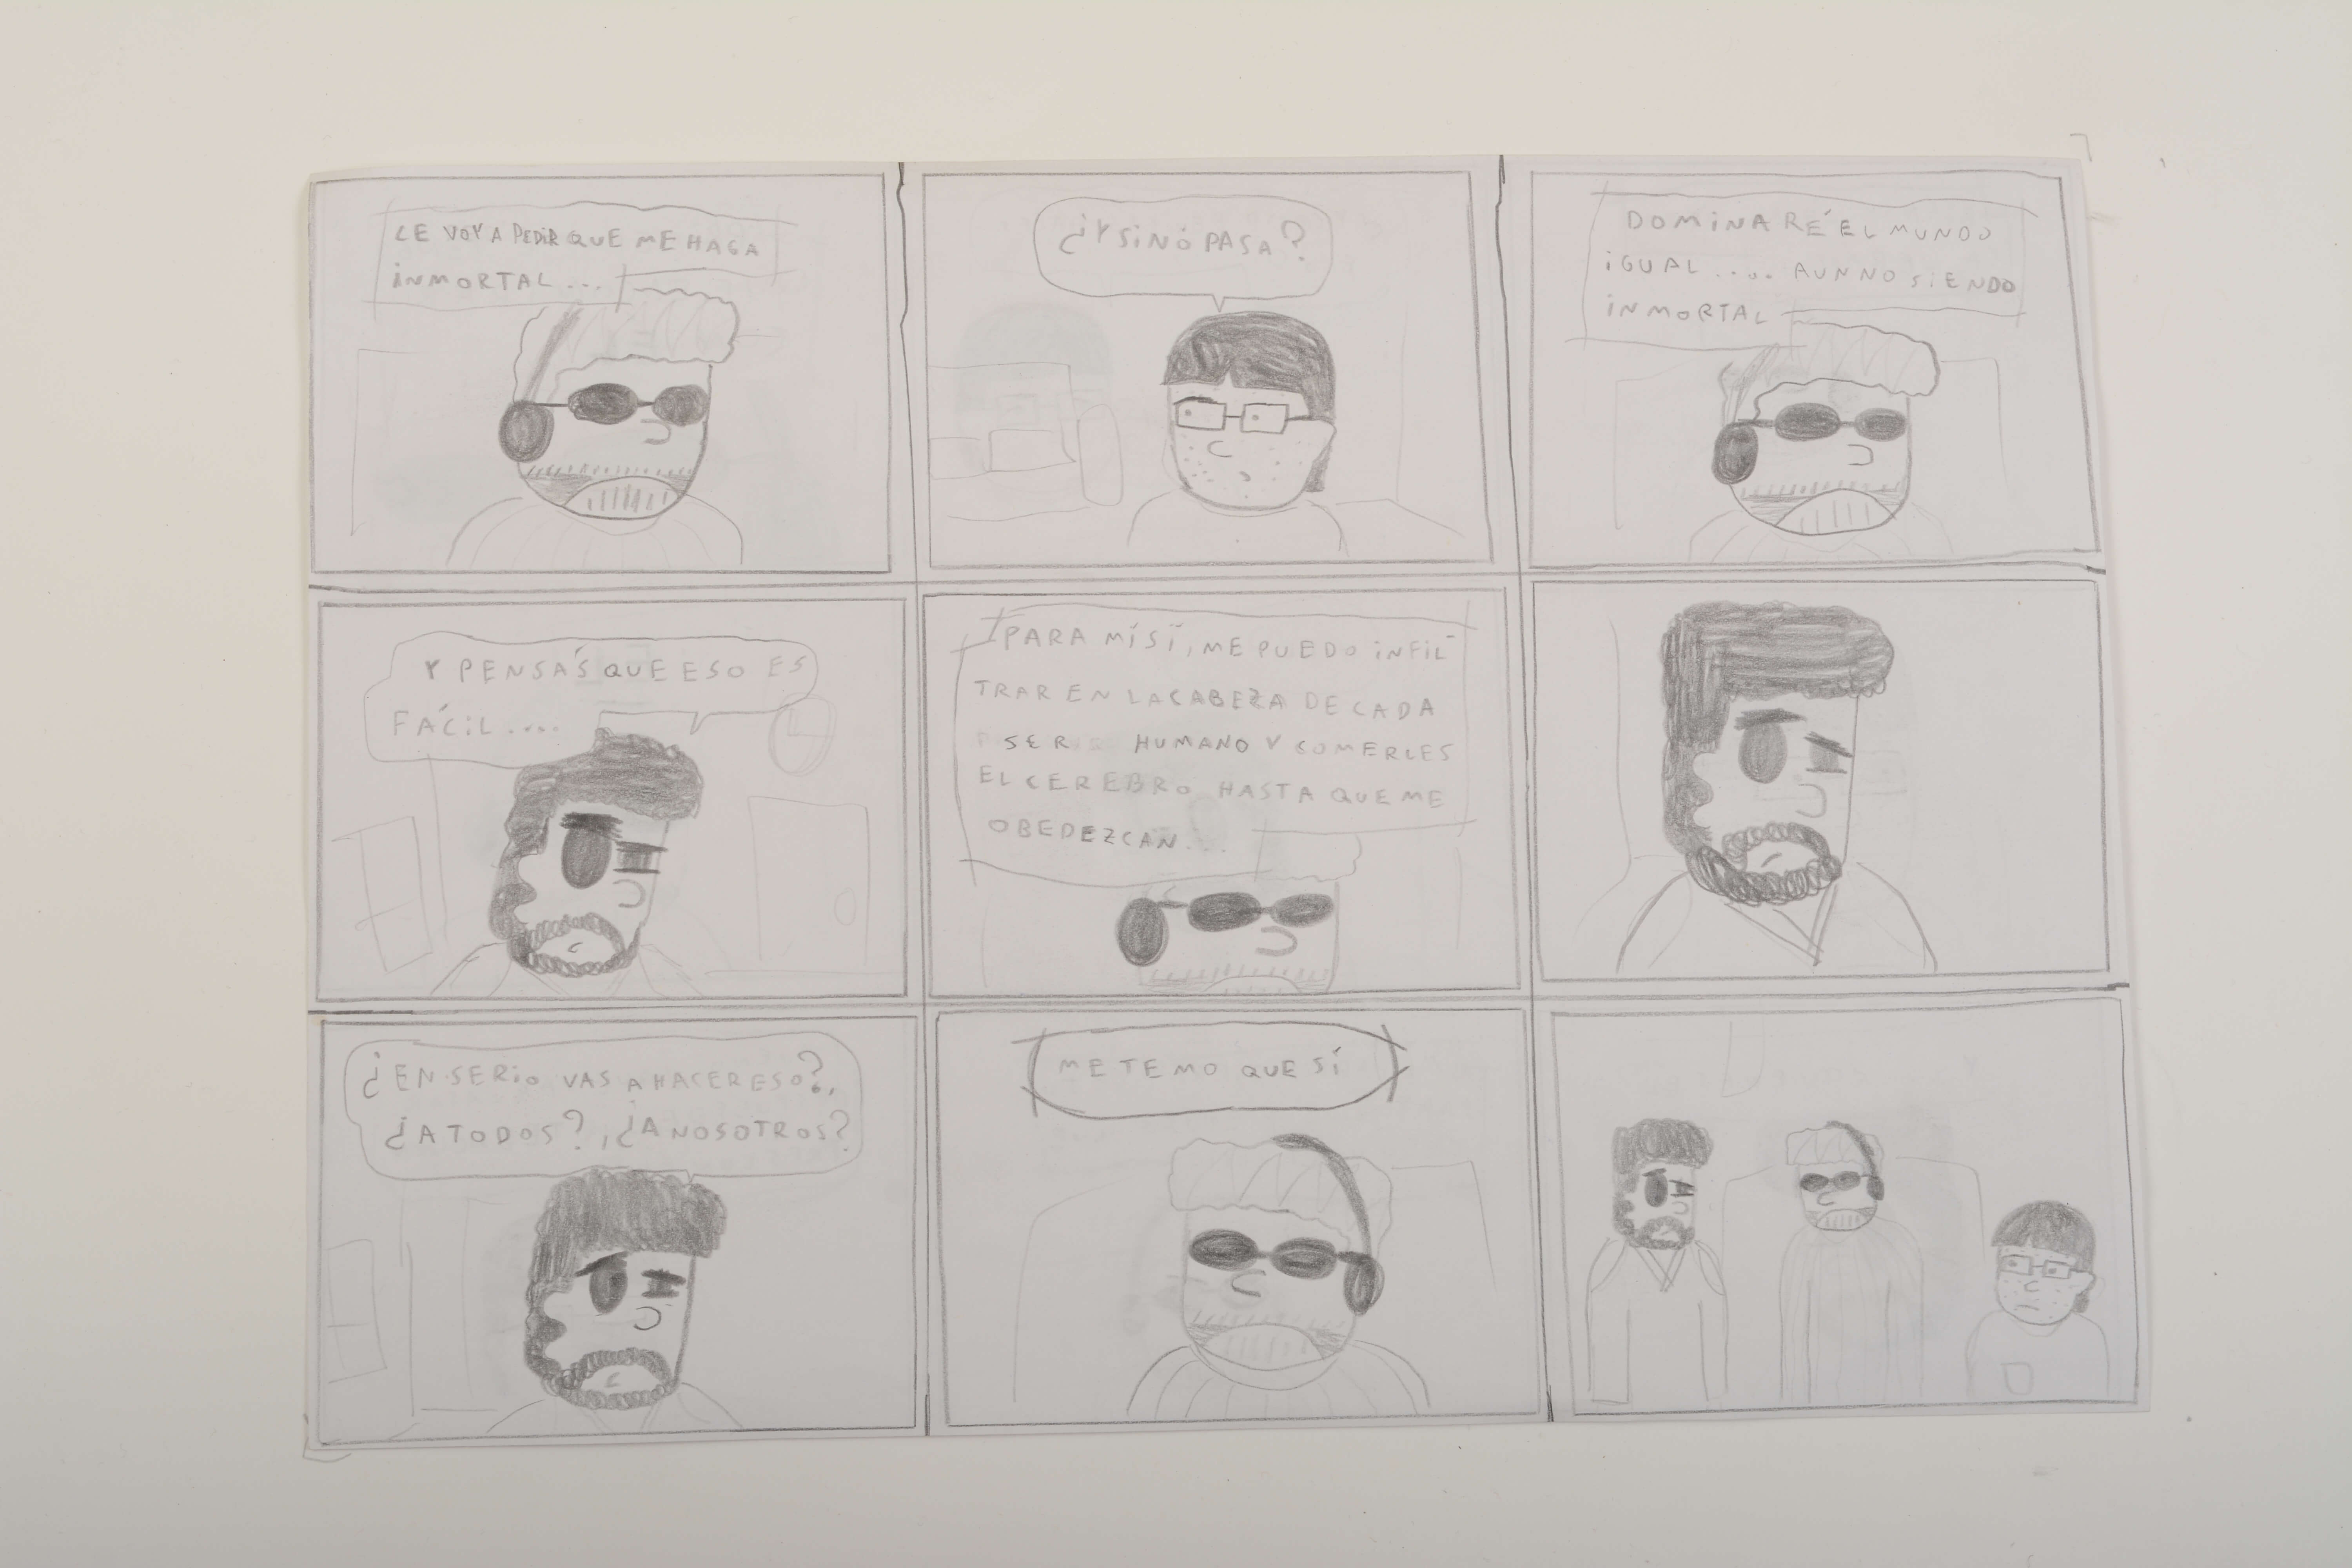 LE VOY A PEDIR QUE ME HAGA
INMORTAL...
¿Y SI NO PASA?
DOMINARÉ EL MUNDO
IGUAL.... AUN NO SIENDO
INMORTAL
Y PENSÁS QUE ESO ES
FÁCIL....
PARA MÍ SÍ, ME PUEDO INFIL-
TRAR EN LA CABEZA DE CADA
SER HUMANO Y COMERLES
EL CEREBRO HASTA QUE ME
OBEDEZCAN...
¿EN SERIO VAS A HACER ESO?,
¿A TODOS?, ¿A NOSOTROS?
ME TEMO QUE SÍ